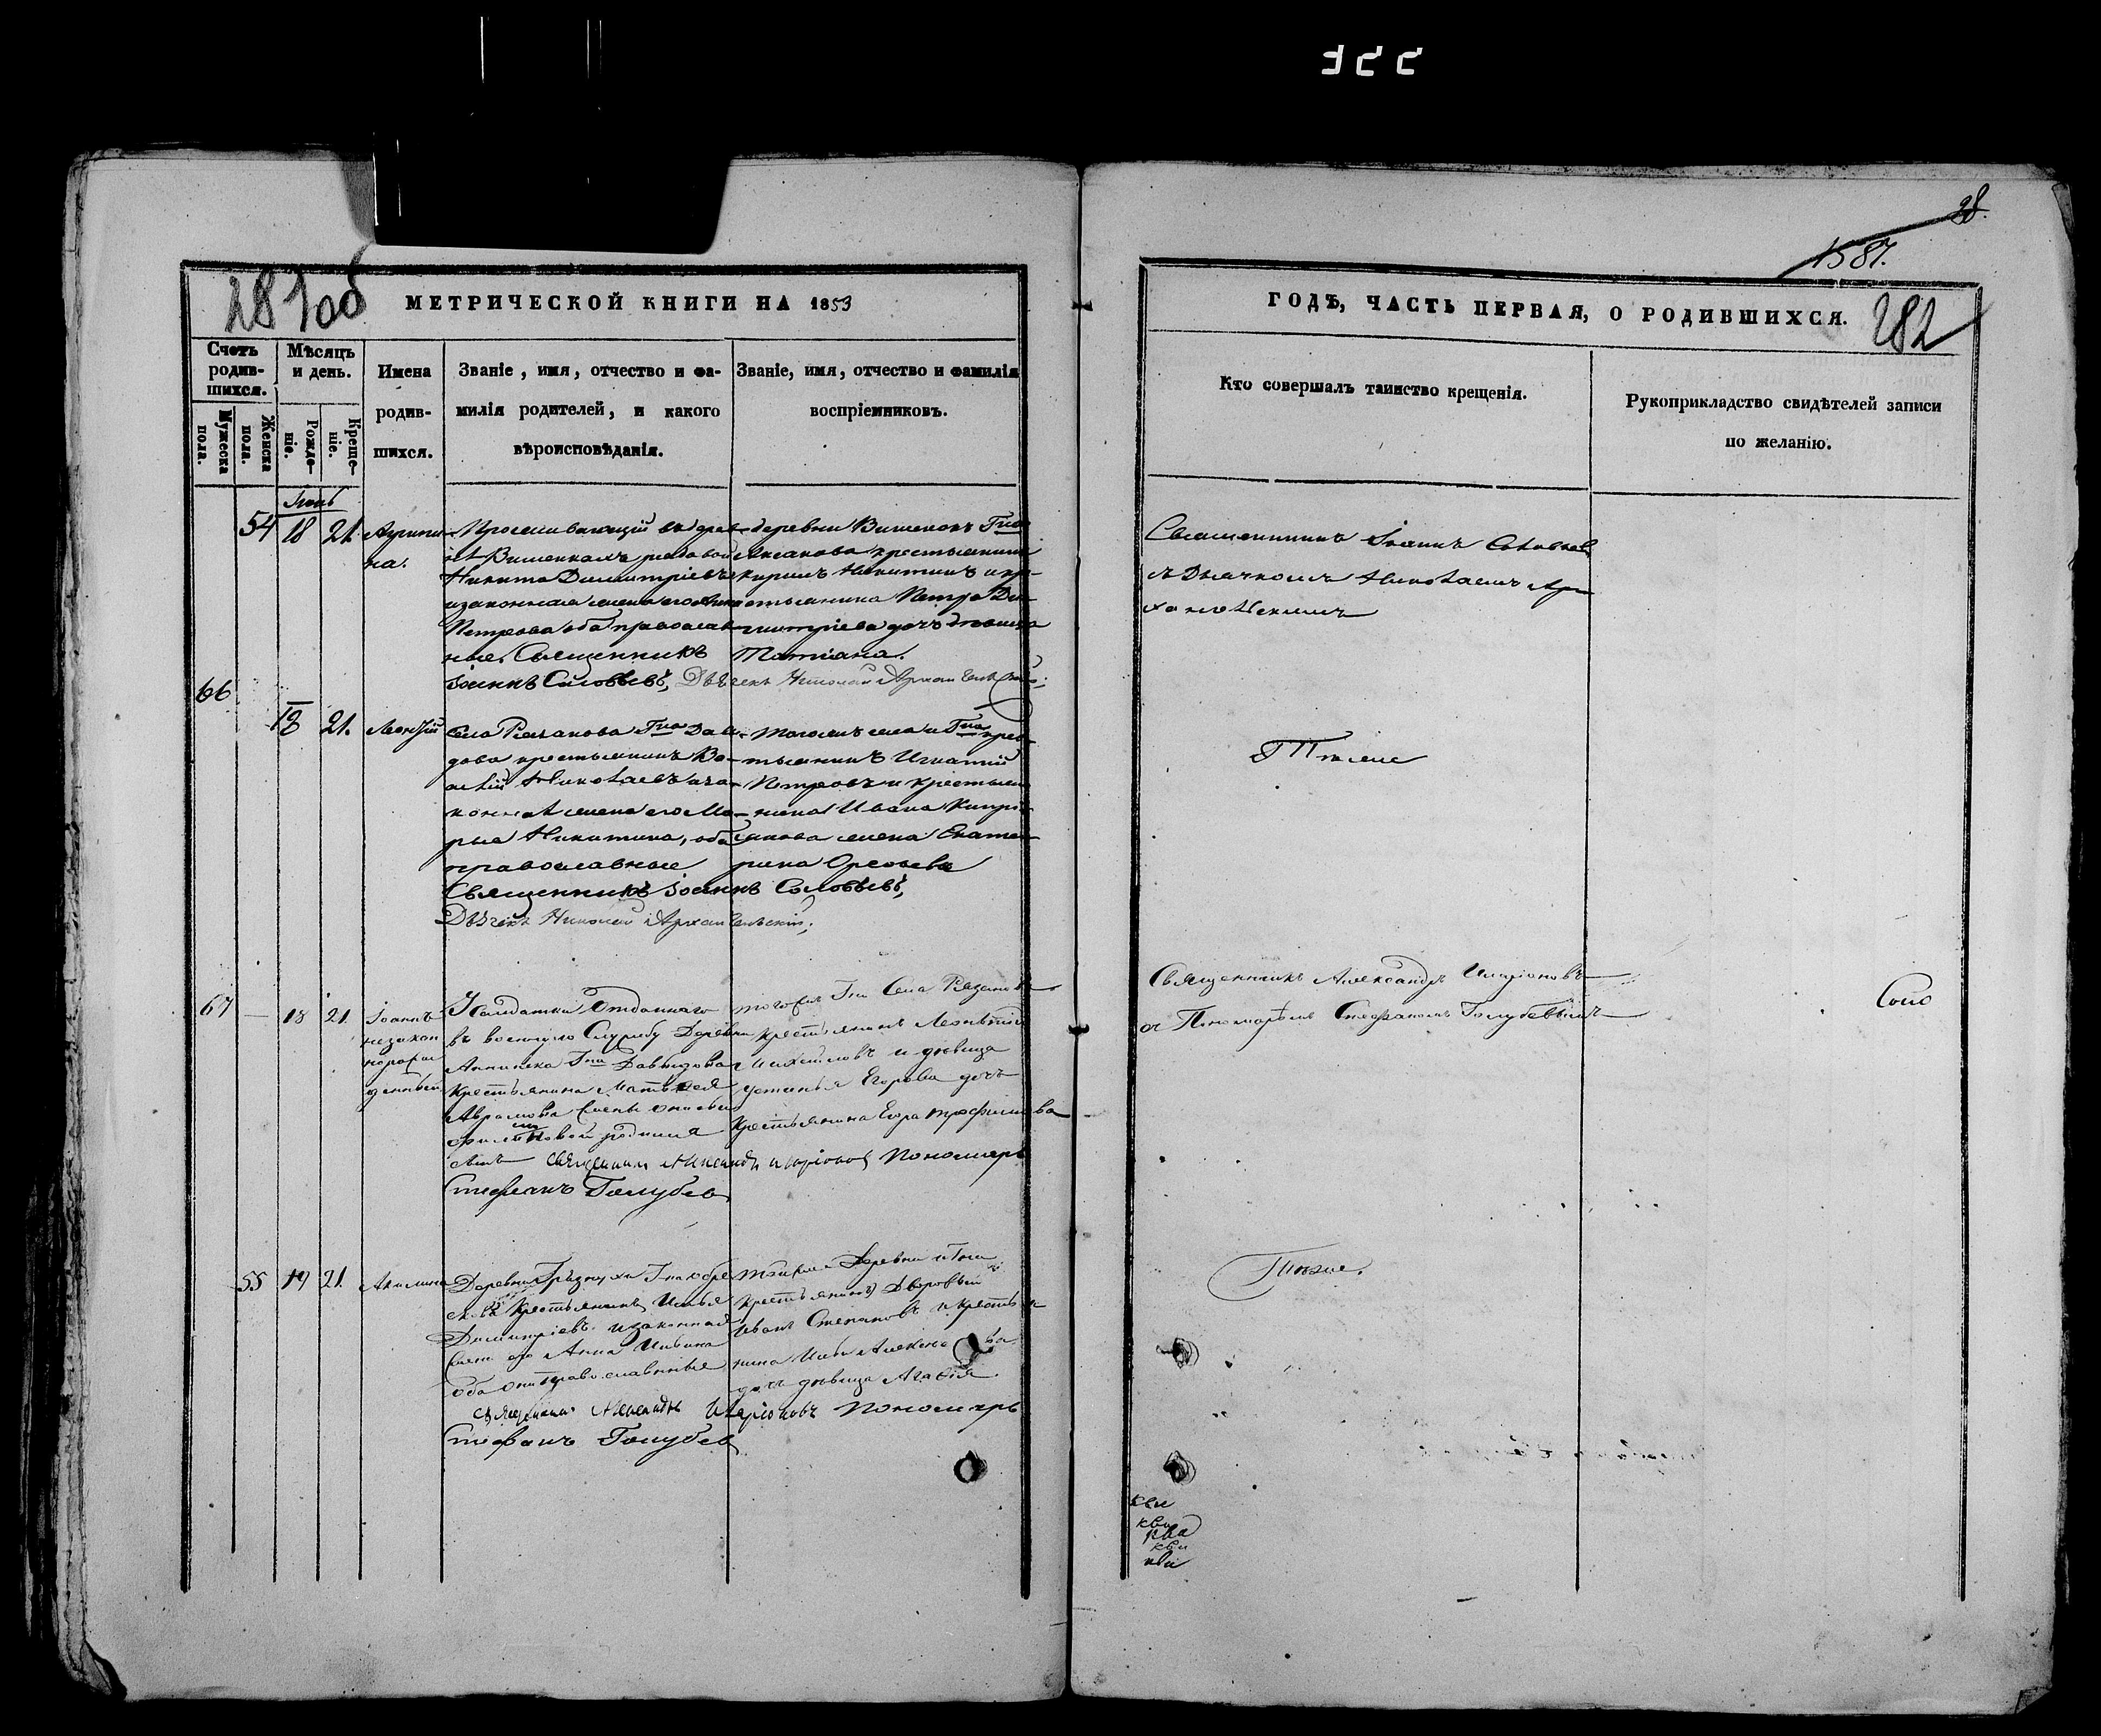 322
28.
1587.
281об
МЕТРИЧЕСКОЙ КНИГИ НА 1853
ГОДЪ, ЧАСТЬ ПЕРВАЯ, О РОДИВШИХСЯ.
282
Счетъ родив-шихся.
Мужеска пола.
Женска пола.
Мѣсяцъ и день.
Рожде-ніе.
Креще-ніе.
Имена родив-шихся.
Званіе, имя, отчество и фа-
милія родителей, и какого
вѣроисповѣданія.
Званіе, имя, отчество и фамилія
воспріемниковъ.
Кто совершалъ таинство крещенія.
Рукоприкладство свидѣтелей записи
по желанію.
Іюнь
54 18 21 Агрипи-
на.
Проживающій въ дерев-
нѣ Вишенкахъ рядовой
Никита Димитріевъ
и законная жена его
Петрова оба православ-
ные. Священникъ
Іоаннъ Соловьевъ, Дьячекъ Николай Архангельскій;
деревни Вишенокъ Гна
Аксакова крестьянинъ
Никитинъ и кре-
стьянина Петра Ди-
митріева дочь дѣвица
Татіана.
Священникъ Іоаннъ Соловьевъ
съ Дьячкомъ Николаемъ Ар-
хангельскимъ
66 18 21. Леонтій
Села Рязанова Гна Давы-
дова крестьянинъ Ва-
силій Николаевъ и за-
конная жена его Ма-
рья Никитина, оба
православные
Священникъ Іоаннъ Соловьевъ,
Дьячекъ Николай Архангельскій;
Тогожъ села и Гна крес-
тьянинъ Игнатій
Петровъ и крестья-
нина Ивана Кипрі-
янова жена Екате-
рина
Тѣже
67 — 18 21. Іоаннъ
незакон
норож
денный
Солдатки Отданнаго
въ военную Службу Деревни
Аннинска Гна Давыдова
Крестьянина Матвея
Аврамова жены
родился
сынъ Священникъ Александръ Иларіоновъ Пономарь
Стефанъ Голубев
тогожъ Гна Села Рязанова
крестьянинъ Леонтій
Михайловъ и дѣвица
Устинья Егорова дочь
Крестьянина Егора Трофимова
Священникъ Александръ Иларіоновъ
съ Пономаремъ Стефаномъ Голубевымъ
55 19 21. Акилина
Деревни Грязнухи Гна
Крестьянинъ Илья
Димитріевъ и законная
жена его Анна Ильина
оба они православныя
Священникъ Александръ Иларіоновъ Пономарь
Стефанъ Голубев
тойже Деревни и Гна
крестьянинъ Дворовый
Иванъ Степановъ и крестья
нина Ильи
дочь дѣвица Агафія
Тѣже.